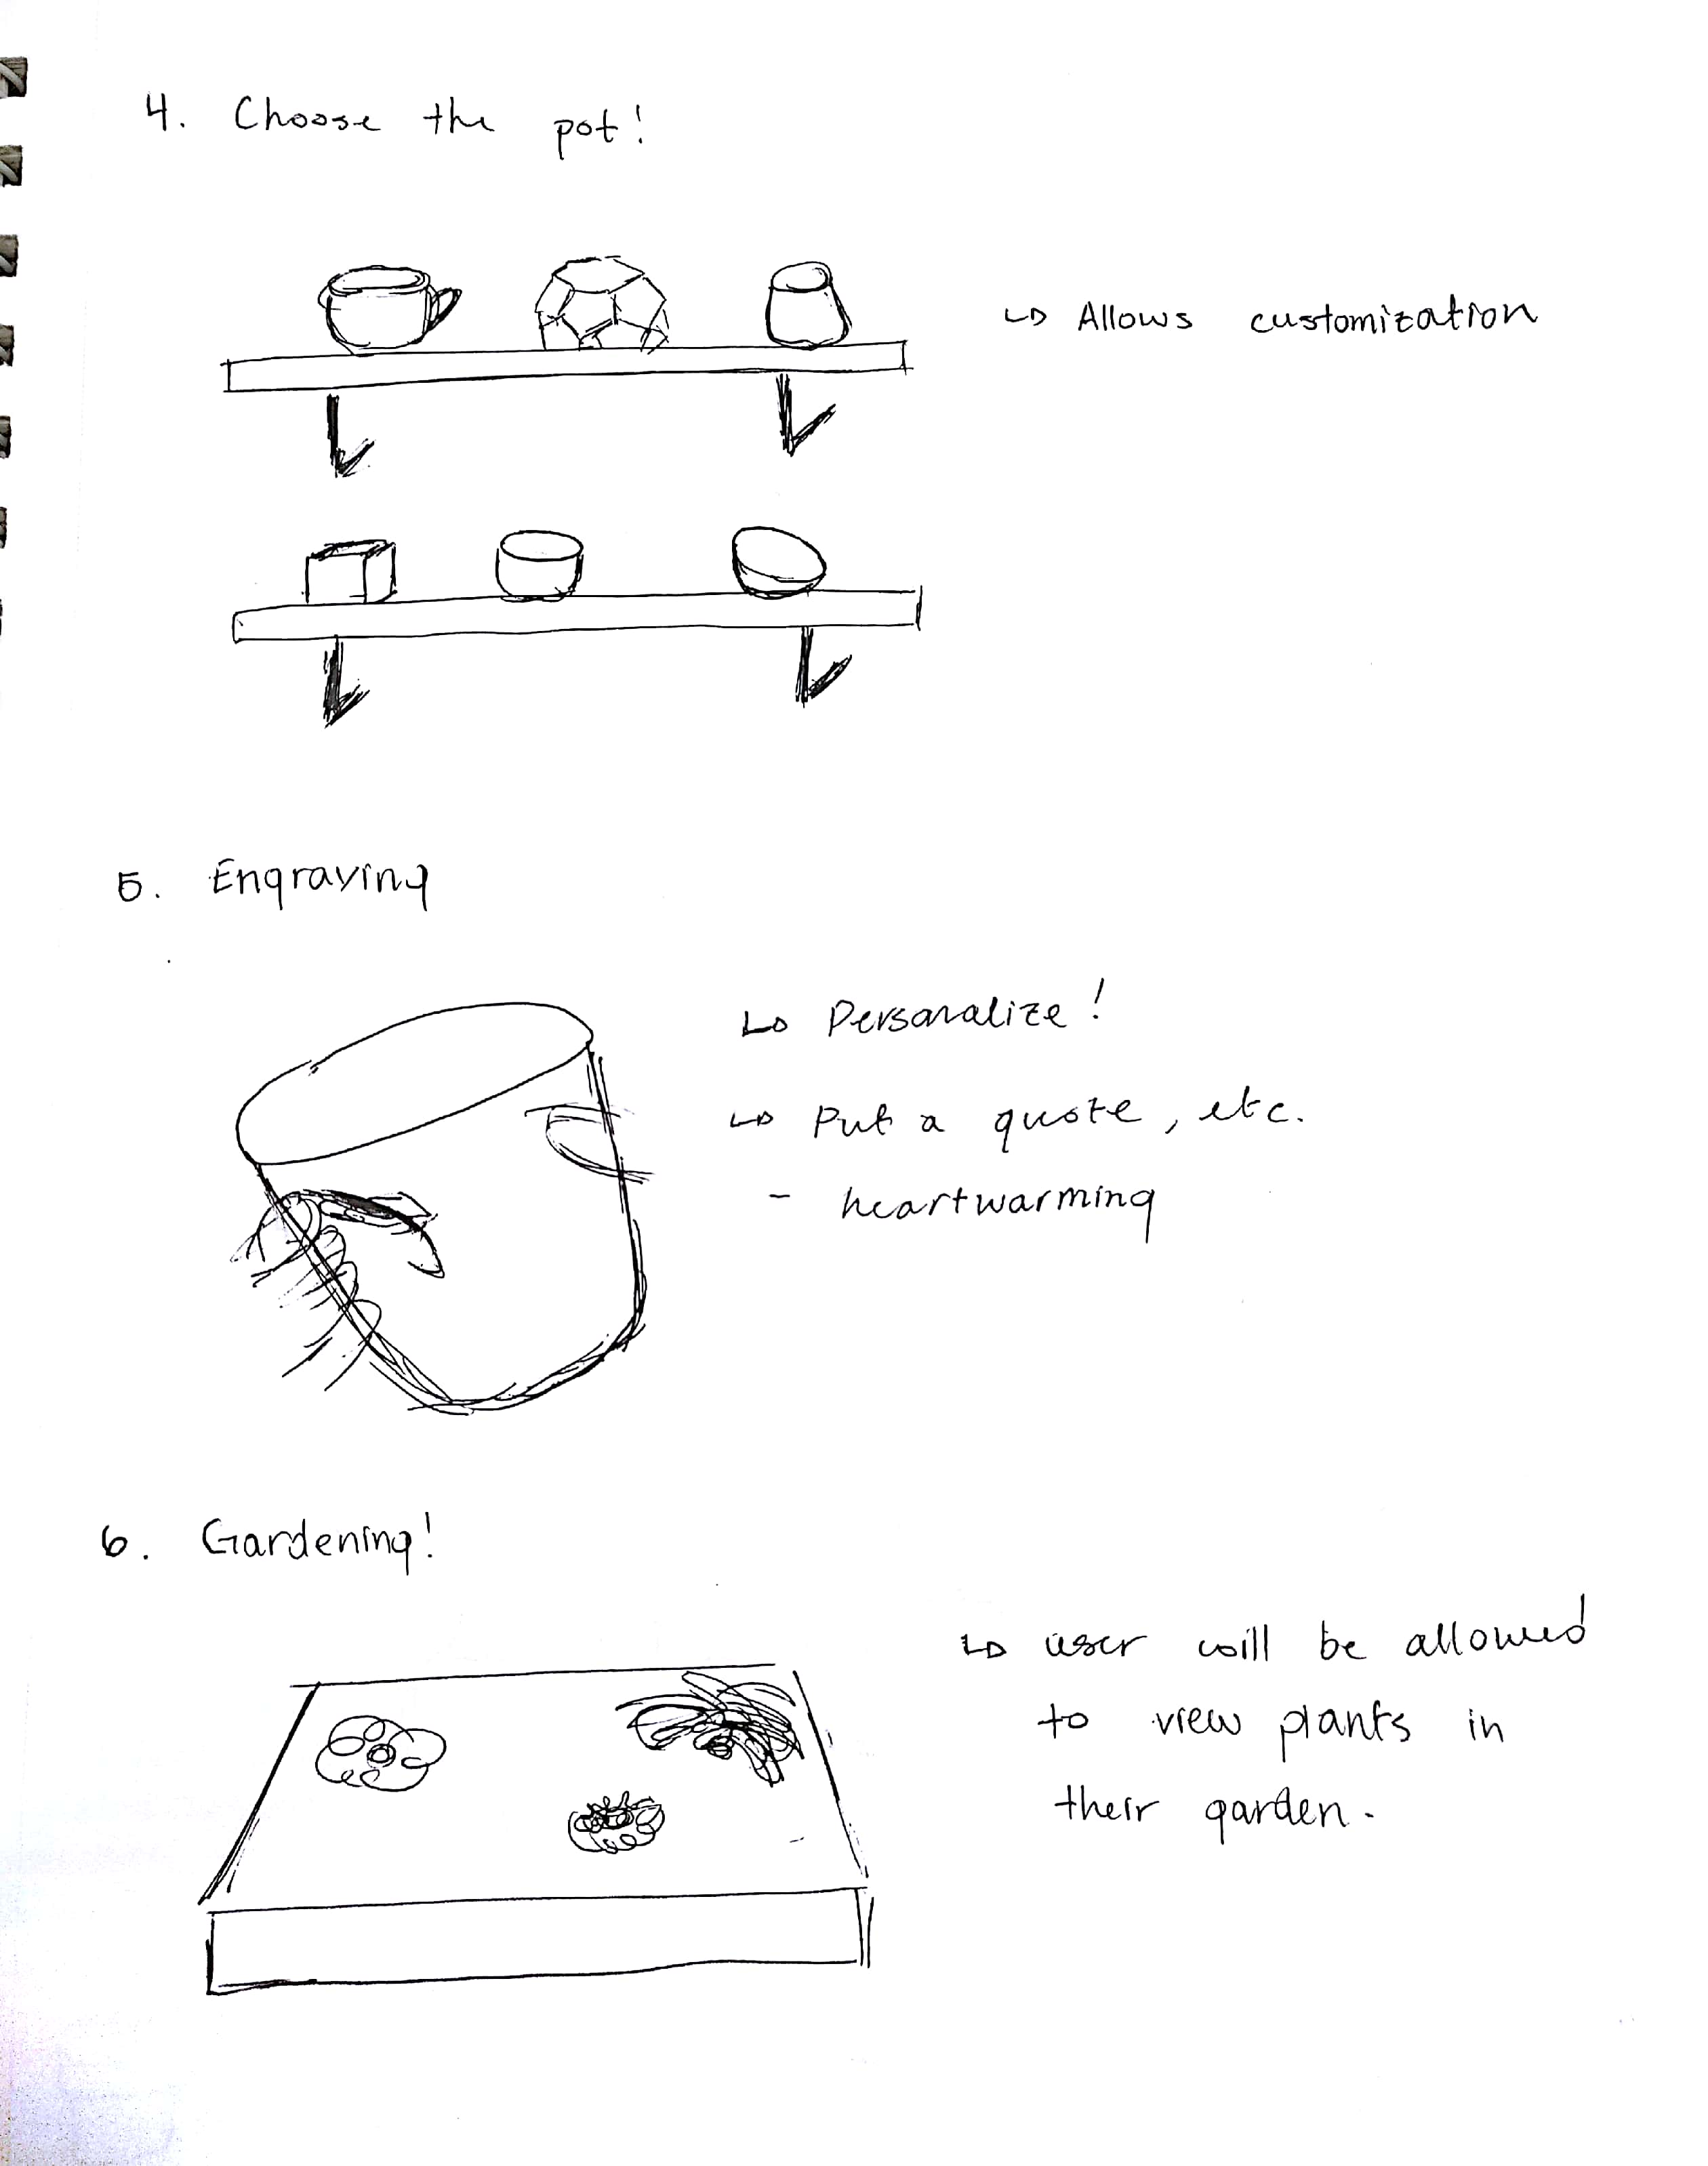 4. Choose the pot!
↳ Allows customization
5. Engraving
↳ Personalize!
↳ Put a quote, etc.
- heartwarming
6. Gardening!
↳ user will be allowed
to view plants in
their garden.